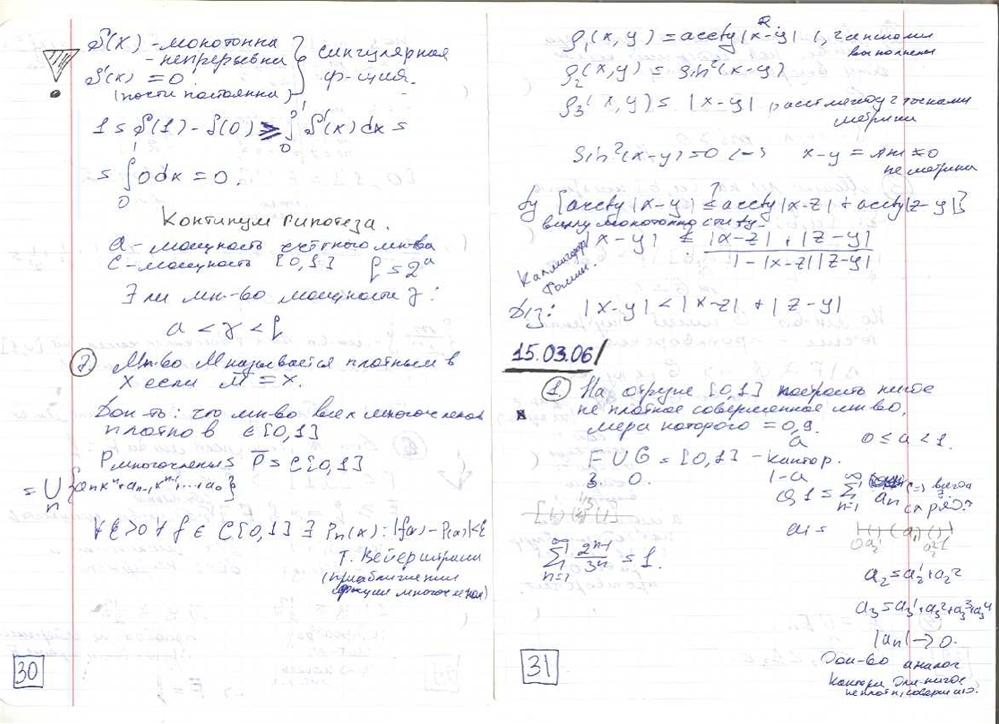 f(x) - монотонна
- непрерывна
f'(x) = 0
(почти постоянна)
} сингулярная
ф-ция.
1 = f(1) - f(0) ≥ ∫₀¹ f'(x) dx =
= ∫₀¹ 0 dx = 0.
Континум гипотеза.
a - мощность счётного мн-ва
c - мощность [0,1] ζ = 2ᵃ
∃ ли мн-во мощности γ:
a < γ < ζ
7) Мн-во M называется плотным в
X если M̄ = X.
Док-ть: что мн-во всех многочленов
плотно в C[0,1]
P многочлены P̄ = C[0,1]
= ⋃ₙ {aₙxⁿ + aₙ₋₁xⁿ⁻¹ + ... + a₀}
∀ε>0 ∀f ∈ C[0,1] ∃ Pₙ(x): |f(x) - P(x)| < ε
т. Вейерштрасса
(приближении
функции многочленом)
30
ρ₁(x, y) = arctg|x-y|, аксиомы
выполнены
ρ₂(x,y) = sin²(x-y)
ρ₃(x, y) = |x-y|, расст между точками
метрики
sin²(x-y) = 0 x-y = πn ≠ 0
не метрика
tg [arctg|x-y| ≤ arctg|x-z| + arctg|z-y|]
ввиду монотонности tg
|x-y| ≤ |x-z| + |z-y| / 1 - |x-z||z-y|
Д/з: |x-y| < |x-z| + |z-y|
15.03.06
1) На отрезке [0,1] построить нигде
не плотное совершенное мн-во,
мера которого = 0,9.
a 0 ≤ a < 1.
F ∪ G = [0,1] - Кантор.
1-a
0,1 = Σₙ₌₁^∞ aₙ
ряд?
Σₙ₌₁^∞ 2ⁿ⁻¹/3ⁿ = 1.
a₁ =
a₂ = a₂¹ + a₂²
a₃ = a₃¹ + a₃² + a₃³ + a₃⁴
|aₙ| → 0.
Док-во аналог
Кантора для нигде
не плотн, соверш.
31